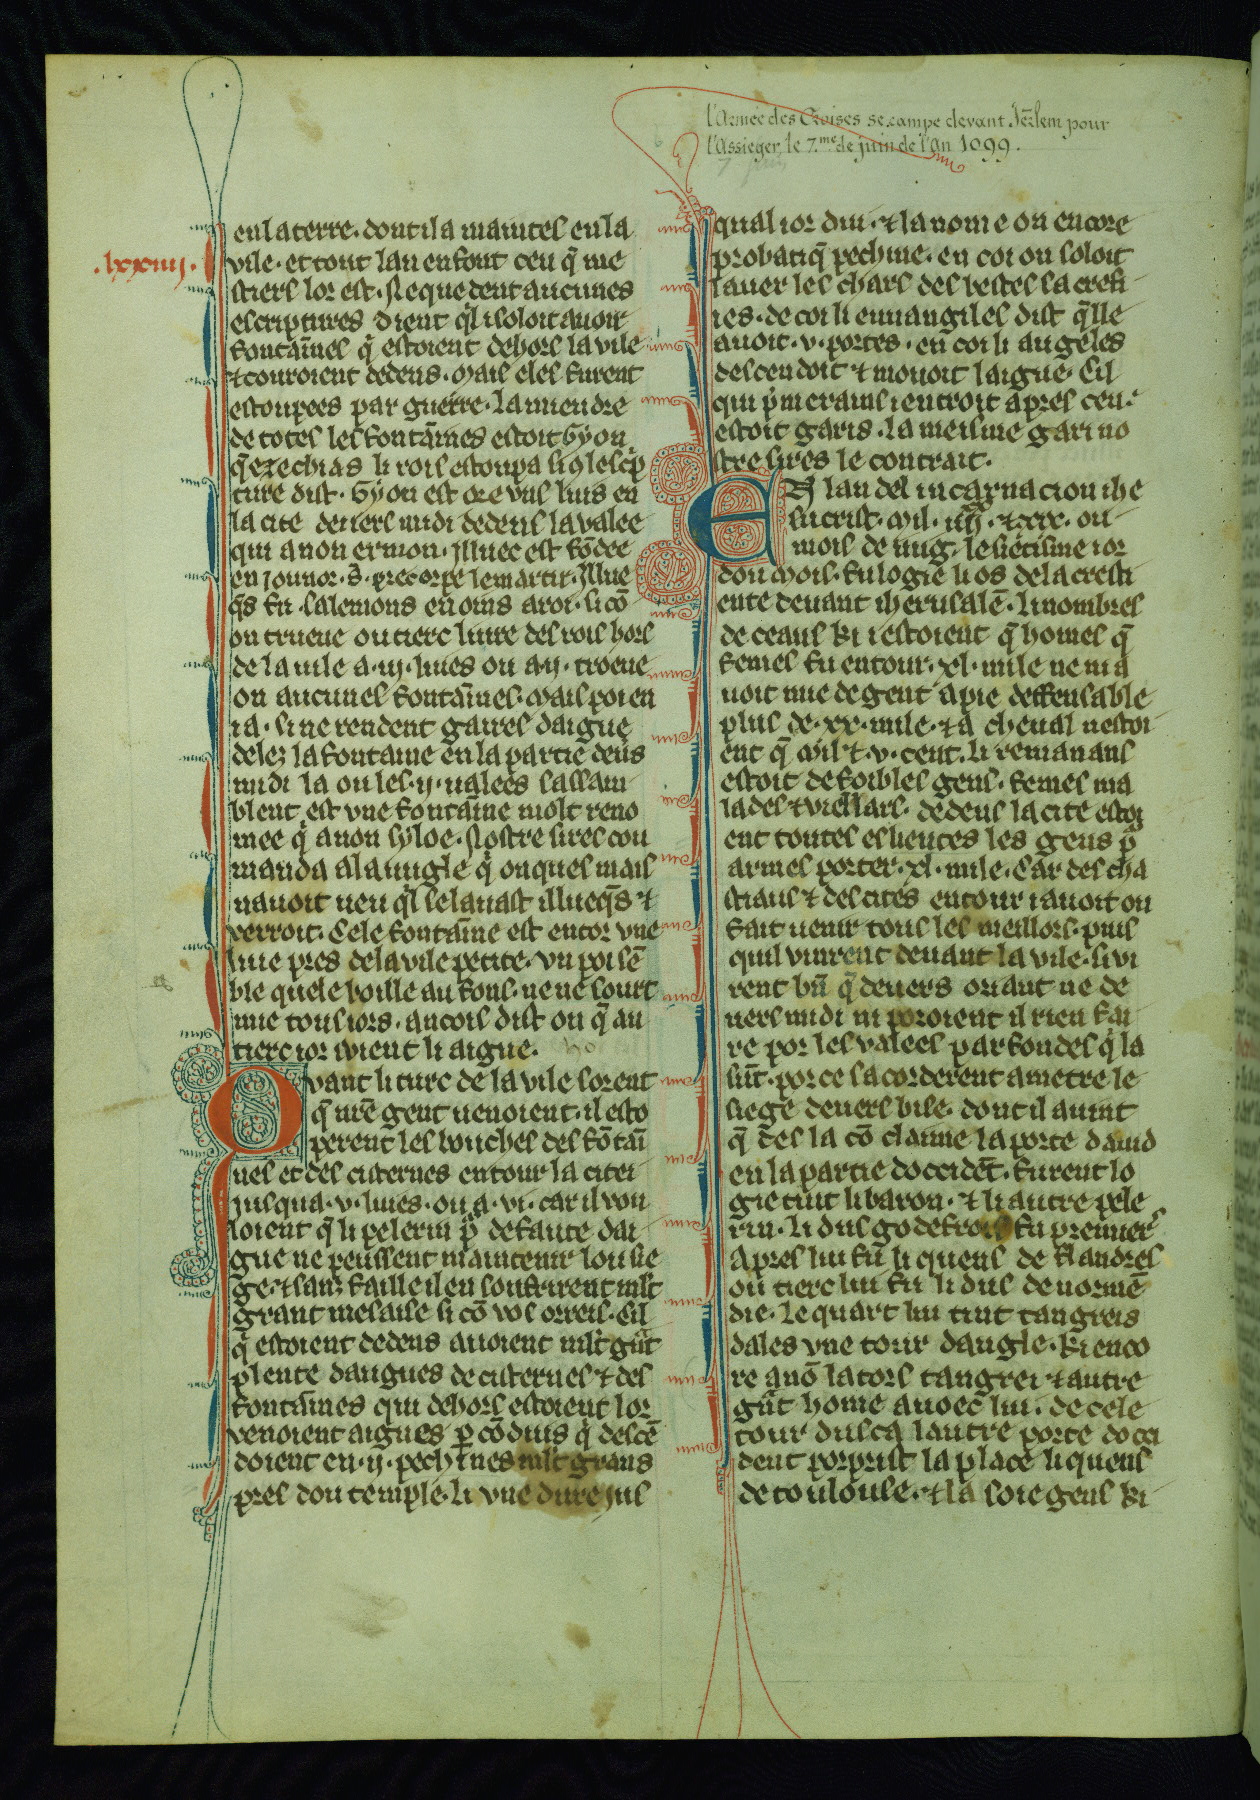 l'Armée des Croises se campe devant Jerlem pour
l'Assieger, le 7.me de juin de l'an 1099.
.lxxiiij.
en la terre. dont il a maintes en la
vile. et tout lau en font ceu q̃ me
stiers lor est. Ne quedent aucunes
escriptures dient ql i soloit auoir
fontaines q̃ estoient dehors la vile
⁊ couroient dedens. Mais eles furent
estoupees par guerre. La miendre
de totes les fontaines estoit Gyon
q̃ ezechias li rois estoupa si q̃ lescp̃
ture dist. Gyon est ore vns luis en
la cite deuers midi dedens la valee
qui a non ermon. Illuec est fõdee
en lounor .S. precorpe le martir. Illue
q̃s fu salemons enoins a roi. si cõ
on trueue ou tierc liure des rois hors
de la uile a .iij. liues ou a .ij. troeue
on aucunes fontaines. Mais poi en
i a. si ne rendent gaires daigue
delez la fontaine en la partie deũs
midi la ou les .ij. ualees sassam
blent est vne fontaine molt reno
mee q̃ a non syloe. Nostre sires cou
manda al auugle q̃ onques mais
nauoit ueu ql se lauast illuecq̃s ⁊
verroit. Cele fontaine est encor vne
liue pres de la vile petite. vn poi sẽ
ble quele boille au fons. ne ne sourt
mie tous iors. ancois dist on q̃ au
tierc ior vient li aigue.
Qvant li turc de la vile sorent
q̃ nr̃e gent uenoient. il esto
perent les bouches des fõtai
nes et des cisternes entour la citei
jusqua .v. liues. ou a .vi. car il vou
loient q̃ li pelerin p̃ defaute dai
gue ne peussent maintenir lou sie
ge. ⁊ sanz faille il en soufrirent mlt
grant mesaise si cõ vos orreis. Cil
q̃ estoient dedens auoient mlt gr̃nt
plente daigues de cisternes ⁊ des
fontaines qui dehors estoient lor
venoient aigues p cõduis q̃ descẽ
doient en .ij. pechines mlt grans
pres dou temple. Li vne dure jus
qual ior dui. ⁊ la nome on encore
probatiq̃ pechine. en coi on soloit
lauer les chars des bestes sacrefi
ies. de coi li euuangiles dist q̃lle
auoit .v. portes. en coi li angeles
descendoit ⁊ mouoit laigue. Cil
qui p̃merains i entroit apres ceu
estoit garis. la meisme gari no
stre sires le contrait.
En lan del incarnacion ihe
sucrist. Mil. iiij. ⁊ xix. ou
mois de iug. le setisme ior
dou mois. fu logie li os de la cresti
ente deuant iherusalẽ. li nombres
de ceaus ki i estoient q̃ homes q̃
femes fu entour .xl. mile ne ni a
uoit mie de gent a pie deffensable
plus de .xx. mile. ⁊ a cheual nestoi
ent q̃ Mil ⁊ .v. cent. li remanans
estoit de foibles gens. femes ma
lades ⁊ viellars. dedens la cite estoi
ent toutes eslieutes les gens p̃
armes porter .xl. mile. Car des cha
stiaus ⁊ des cites entour i auoit on
fait uenir tous les meillors. puis
quil vinrent deuant la vile. si vi
rent bñ q̃ deuers oriant ne de
uers midi ni poroient il rien fai
re por les valees parfondes q̃ la
sũt. por ce sacorderent a metre le
siege deuers bise. dont il auint
q̃ des la cõ claime la porte dauid
en la partie doccidẽt. furent lo
gie tuit li baron. ⁊ li autre pele
rin. li dus godefrois fu premiers
Apres lui fu li quens de flandres
ou tierc lui fu li dus de normẽ
die. le quart lui tint tangreis
dales vne tour dangle. ki enco
re a nõ la tors tangrei ⁊ autre
gr̃nt home auoec lui. de cele
tour dusca lautre porte docci
dent porprist la place li quens
de toulouse. ⁊ la soie gens ki